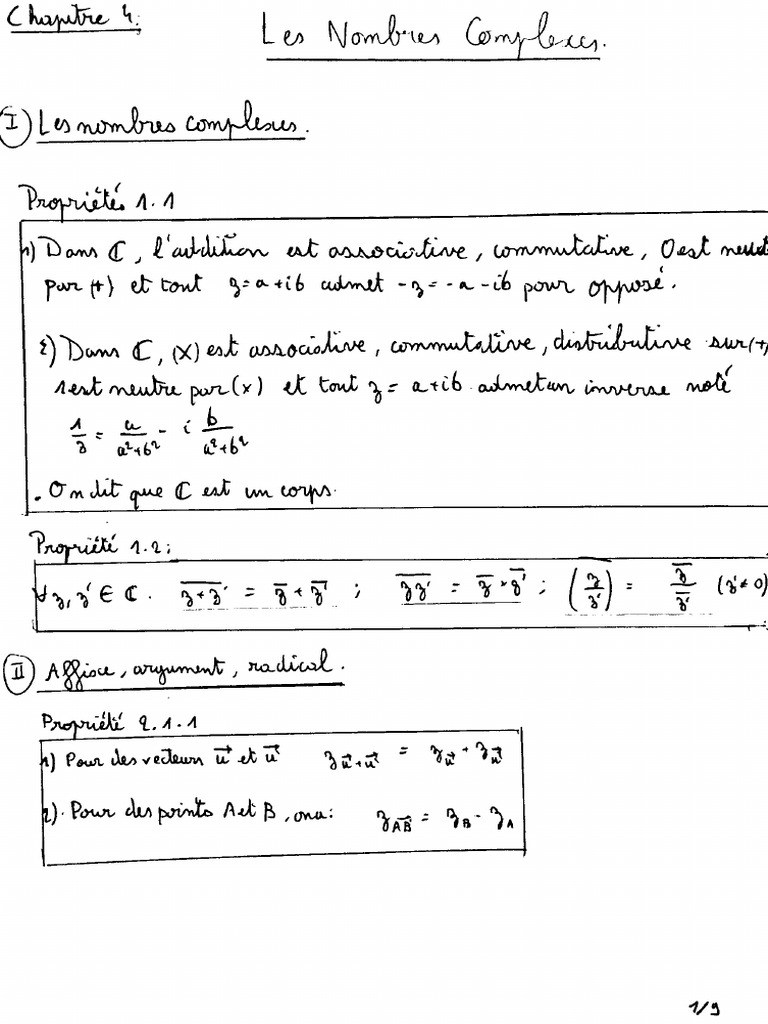 Chapitre 4:
Les Nombres Complexes.
I) Les nombres complexes.
Propriétés 1.1
1) Dans ℂ, l'addition est associative, commutative, 0 est neutre
par (+) et tout z = a + ib admet -z = -a - ib pour opposé.
2) Dans ℂ, (×) est associative, commutative, distributive sur (+)
1 est neutre par (×) et tout z = a + ib admet un inverse noté
1/z = a/(a²+b²) - i b/(a²+b²)
. On dit que ℂ est un corps.
Propriété 1.2:
∀ z, z' ∈ ℂ. \overline{z+z'} = \overline{z} + \overline{z'} ; \overline{zz'} = \overline{z} × \overline{z'} ; \overline{(z/z')} = \overline{z}/\overline{z'} (z' ≠ 0)
II) Affixe, argument, radical.
Propriété 2.1.1
1) Pour des vecteurs \vec{u} et \vec{u}' z_{\vec{u}+\vec{u}'} = z_{\vec{u}} + z_{\vec{u}'}
2). Pour des points A et B, on a: z_{\vec{AB}} = z_B - z_A
1/9